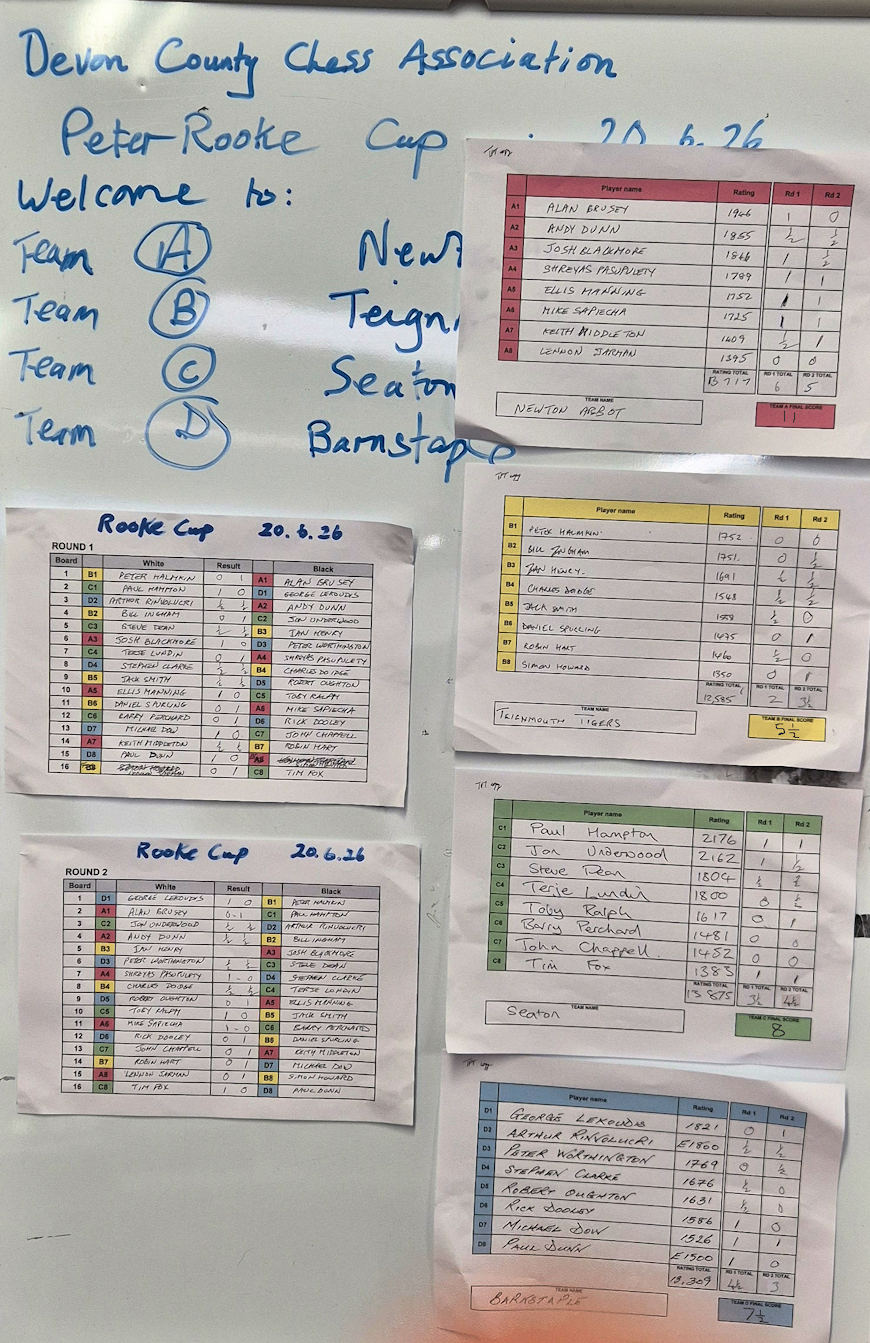 Devon County Chess Association
Peter Rooke Cup 20.6.26
Welcome to:
Team A Newt
Team B Teign
Team C Seaton
Team D Barnstaple
Player name Rating Rd 1 Rd 2
A1 ALAN BRUSEY 1946 1 0
A2 ANDY DUNN 1855 ½ ½
A3 JOSH BLACKMORE 1846 1 ½
A4 SHREYAS PASUPULETY 1799 1 1
A5 ELLIS MANNING 1752 1 1
A6 MIKE SAPIECHA 1725 1 1
A7 KEITH MIDDLETON 1409 ½ 1
A8 LENNON JARMAN 1395 0 0
RATING TOTAL RD 1 TOTAL RD 2 TOTAL
13717 6 5
TEAM NAME TEAM A FINAL SCORE
NEWTON ABBOT 11
Player name Rating Rd 1 Rd 2
B1 PETER HALMKIN 1752 0 0
B2 BILL INGHAM 1751 0 ½
B3 IAN HENRY 1691 ½ ½
B4 CHARLES DODGE 1548 ½ ½
B5 JACK SMITH 1558 ½ 0
B6 DANIEL SPURLING 1475 0 1
B7 ROBIN HART 1460 ½ 0
B8 SIMON HOWARD 1350 0 1
RATING TOTAL RD 1 TOTAL RD 2 TOTAL
12,585 2 3½
TEAM NAME TEAM B FINAL SCORE
TEIGNMOUTH TIGERS 5½
Rooke Cup 20.6.26
ROUND 1
Board White Result Black
1 B1 PETER HALMKIN 0 1 A1 ALAN BRUSEY
2 C1 PAUL HAMPTON 1 0 D1 GEORGE LEKOUDIS
3 D2 ARTHUR RINVOLUCRI ½ ½ A2 ANDY DUNN
4 B2 BILL INGHAM 0 1 C2 JON UNDERWOOD
5 C3 STEVE DEAN ½ ½ B3 IAN HENRY
6 A3 JOSH BLACKMORE 1 0 D3 PETER WORTHINGTON
7 C4 TERJE LUNDIN 0 1 A4 SHREYAS PASUPULETY
8 D4 STEPHEN CLARKE ½ ½ B4 CHARLES DOIDGE
9 B5 JACK SMITH ½ ½ D5 ROBERT OUGHTON
10 A5 ELLIS MANNING 1 0 C5 TOBY RALPH
11 B6 DANIEL SPURLING 0 1 A6 MIKE SAPIECHA
12 C6 BARRY PERCHARD 0 1 D6 RICK DOOLEY
13 D7 MICHAEL DOW 1 0 C7 JOHN CHAPPELL
14 A7 KEITH MIDDLETON ½ ½ B7 ROBIN HART
15 D8 PAUL DUNN 1 0
16 0 1 C8 TIM FOX
Player name Rating Rd 1 Rd 2
C1 Paul Hampton 2176 1 1
C2 Jon Underwood 2162 1 ½
C3 Steve Dean 1804 ½ ½
C4 Terje Lundin 1800 0 ½
C5 Toby Ralph 1617 0 1
C6 Barry Perchard 1481 0 0
C7 John Chappell. 1452 0 0
C8 Tim Fox 1383 1 1
RATING TOTAL RD 1 TOTAL RD 2 TOTAL
13 875 3½ 4½
TEAM NAME TEAM C FINAL SCORE
Seaton 8
Rooke Cup 20.6.26
ROUND 2
Board White Result Black
1 D1 GEORGE LEKOUDIS 1 0 B1 PETER HALMKIN
2 A1 ALAN BRUSEY 0-1 C1 PAUL HAMPTON
3 C2 JON UNDERWOOD ½ ½ D2 ARTHUR RINVOLUCRI
4 A2 ANDY DUNN ½ ½ B2 BILL INGHAM
5 B3 IAN HENRY A3 JOSH BLACKMORE
6 D3 PETER WORTHINGTON ½ ½ C3 STEVE DEAN
7 A4 SHREYAS PASUPULETY 1-0 D4 STEPHEN CLARKE
8 B4 CHARLES DOIDGE ½ ½ C4 TERJE LUNDIN
9 D5 ROBERT OUGHTON 0 1 A5 ELLIS MANNING
10 C5 TOBY RALPH 1 0 B5 JACK SMITH
11 A6 MIKE SAPIECHA 1-0 C6 BARRY PERCHARD
12 D6 RICK DOOLEY 0 1 B6 DANIEL SPURLING
13 C7 JOHN CHAPPELL 0 1 A7 KEITH MIDDLETON
14 B7 ROBIN HART 0 1 D7 MICHAEL DOW
15 A8 LENNON JARMAN 0 1 B8 SIMON HOWARD
16 C8 TIM FOX 1 0 D8 PAUL DUNN
Player name Rating Rd 1 Rd 2
D1 GEORGE LEKOUDIS 1821 0 1
D2 ARTHUR RINVOLUCRI E1800 ½ ½
D3 PETER WORTHINGTON 1769 0 ½
D4 STEPHEN CLARKE 1676 ½ 0
D5 ROBERT OUGHTON 1631 ½ 0
D6 RICK DOOLEY 1586 1 0
D7 MICHAEL DOW 1526 1 1
D8 PAUL DUNN E1500 1 0
RATING TOTAL RD 1 TOTAL RD 2 TOTAL
13,309 4½ 3
TEAM NAME TEAM D FINAL SCORE
BARNSTAPLE 7½